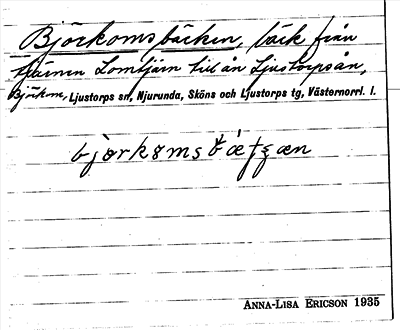 Björkomsbäcken, bäck från
tjärnen Lomtjärn till ån Ljustorpsån,
Björkom, Ljustorps sn, Njurunda, Sköns och Ljustorps tg, Västernorrl. l.
ANNA-LISA ERICSON 1935